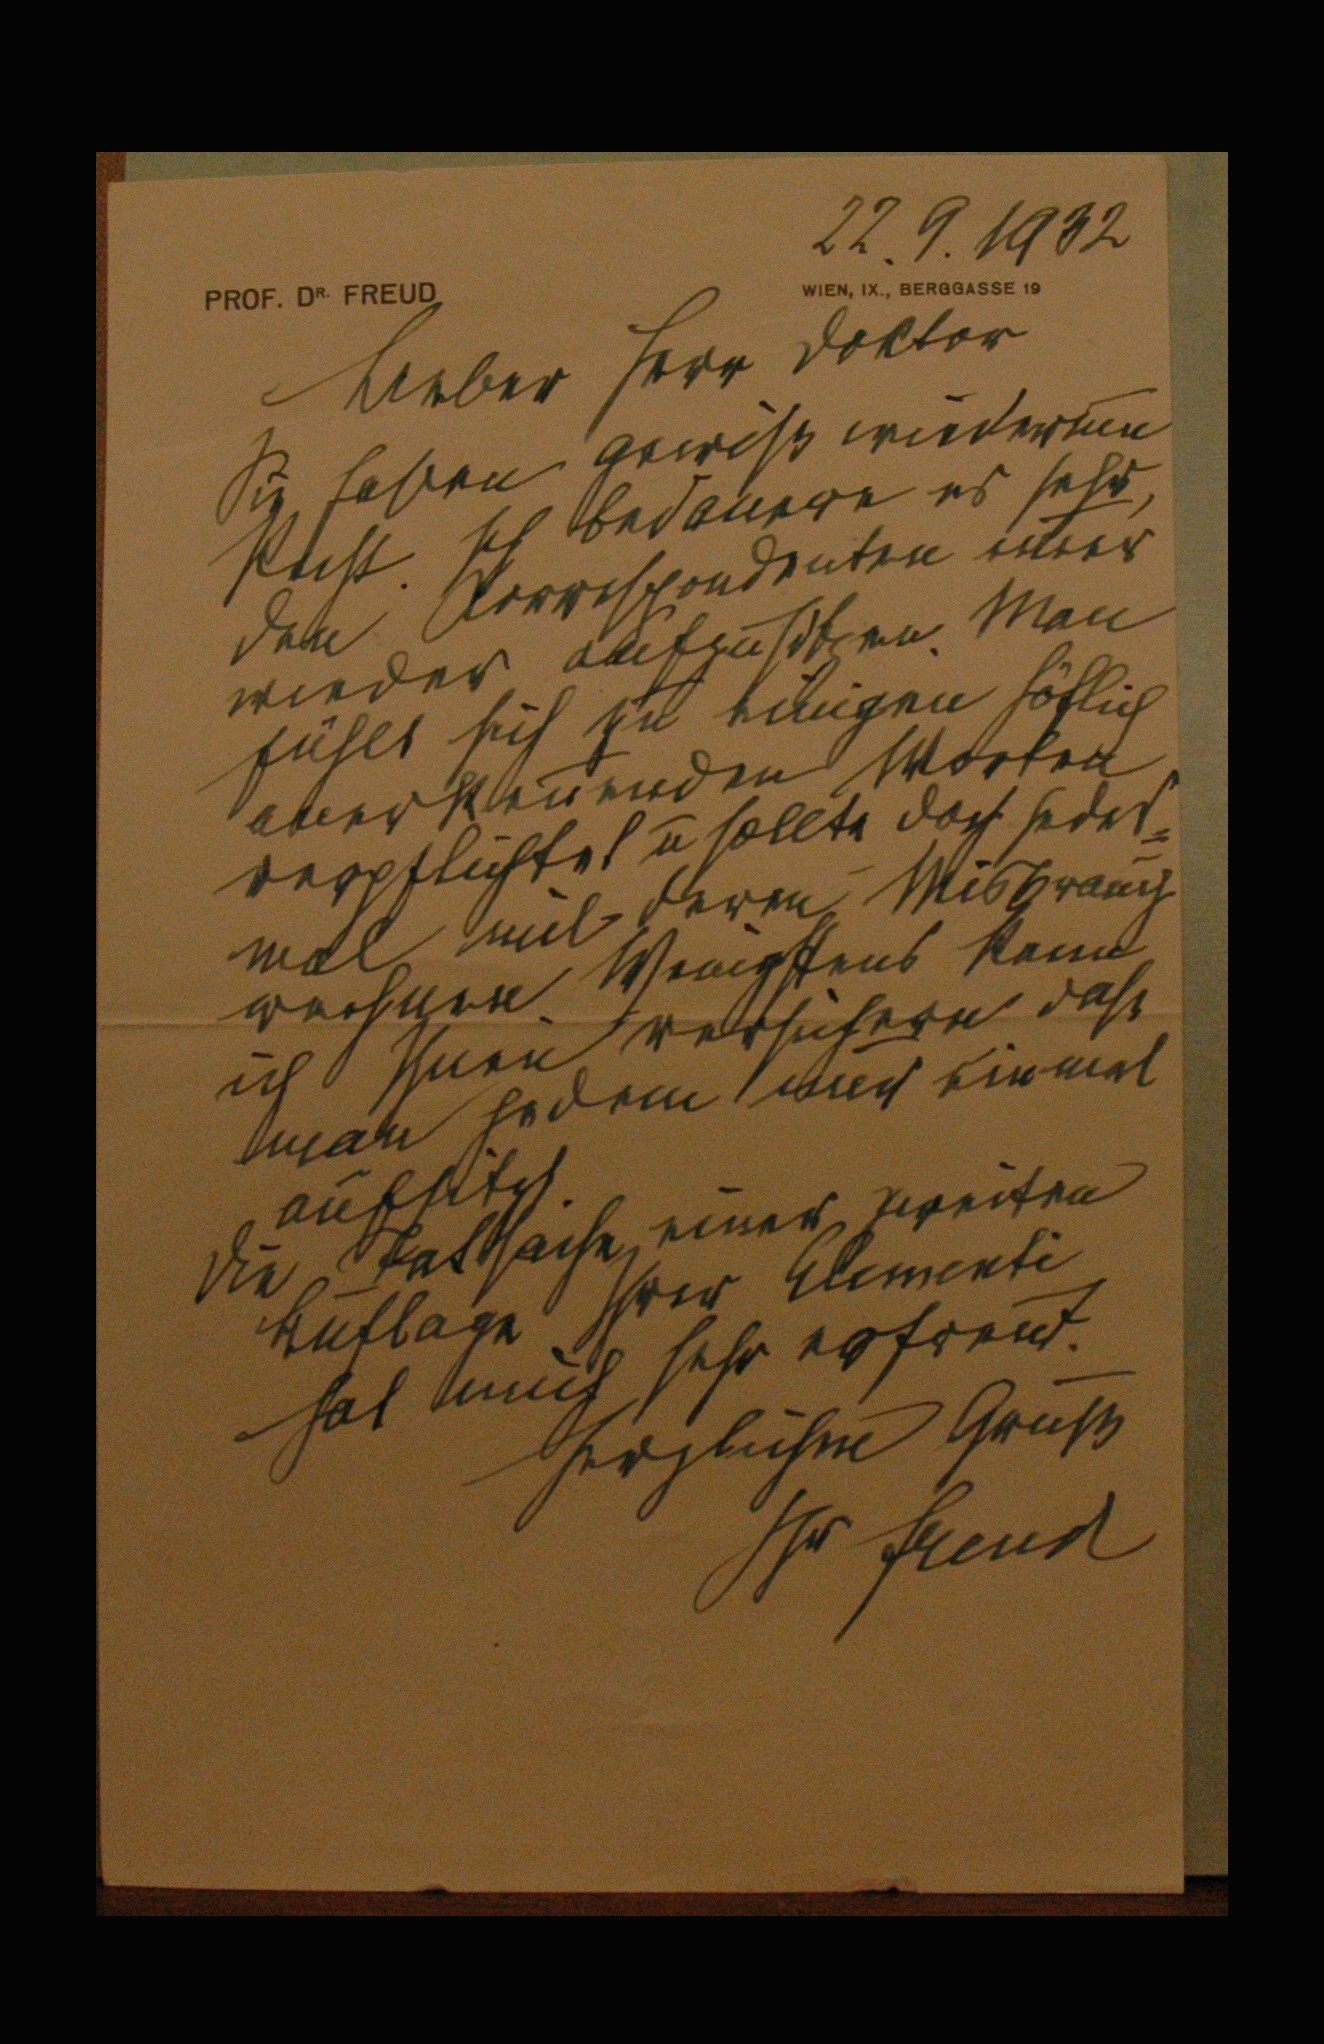 22. 9. 1932
PROF. DR. FREUD WIEN, IX., BERGGASSE 19
Lieber Herr Doktor
Sie haben gewiß wiederum
Recht. Ich bedauere es sehr,
den Korrespondenten immer
wieder aufzusitzen. Man
fühlt sich zu einigen höflich
anerkennenden Worten
verpflichtet u sollte doch jedes=
mal mit deren Misbrauch
rechnen. Wenigstens kann
ich Ihnen versichern daß
man jedem nur einmal
aufsitzt.
Die Tatsache einer zweiten
Auflage Ihrer Elementi
hat mich sehr erfreut.
Herzlichen Gruß
Ihr Freud